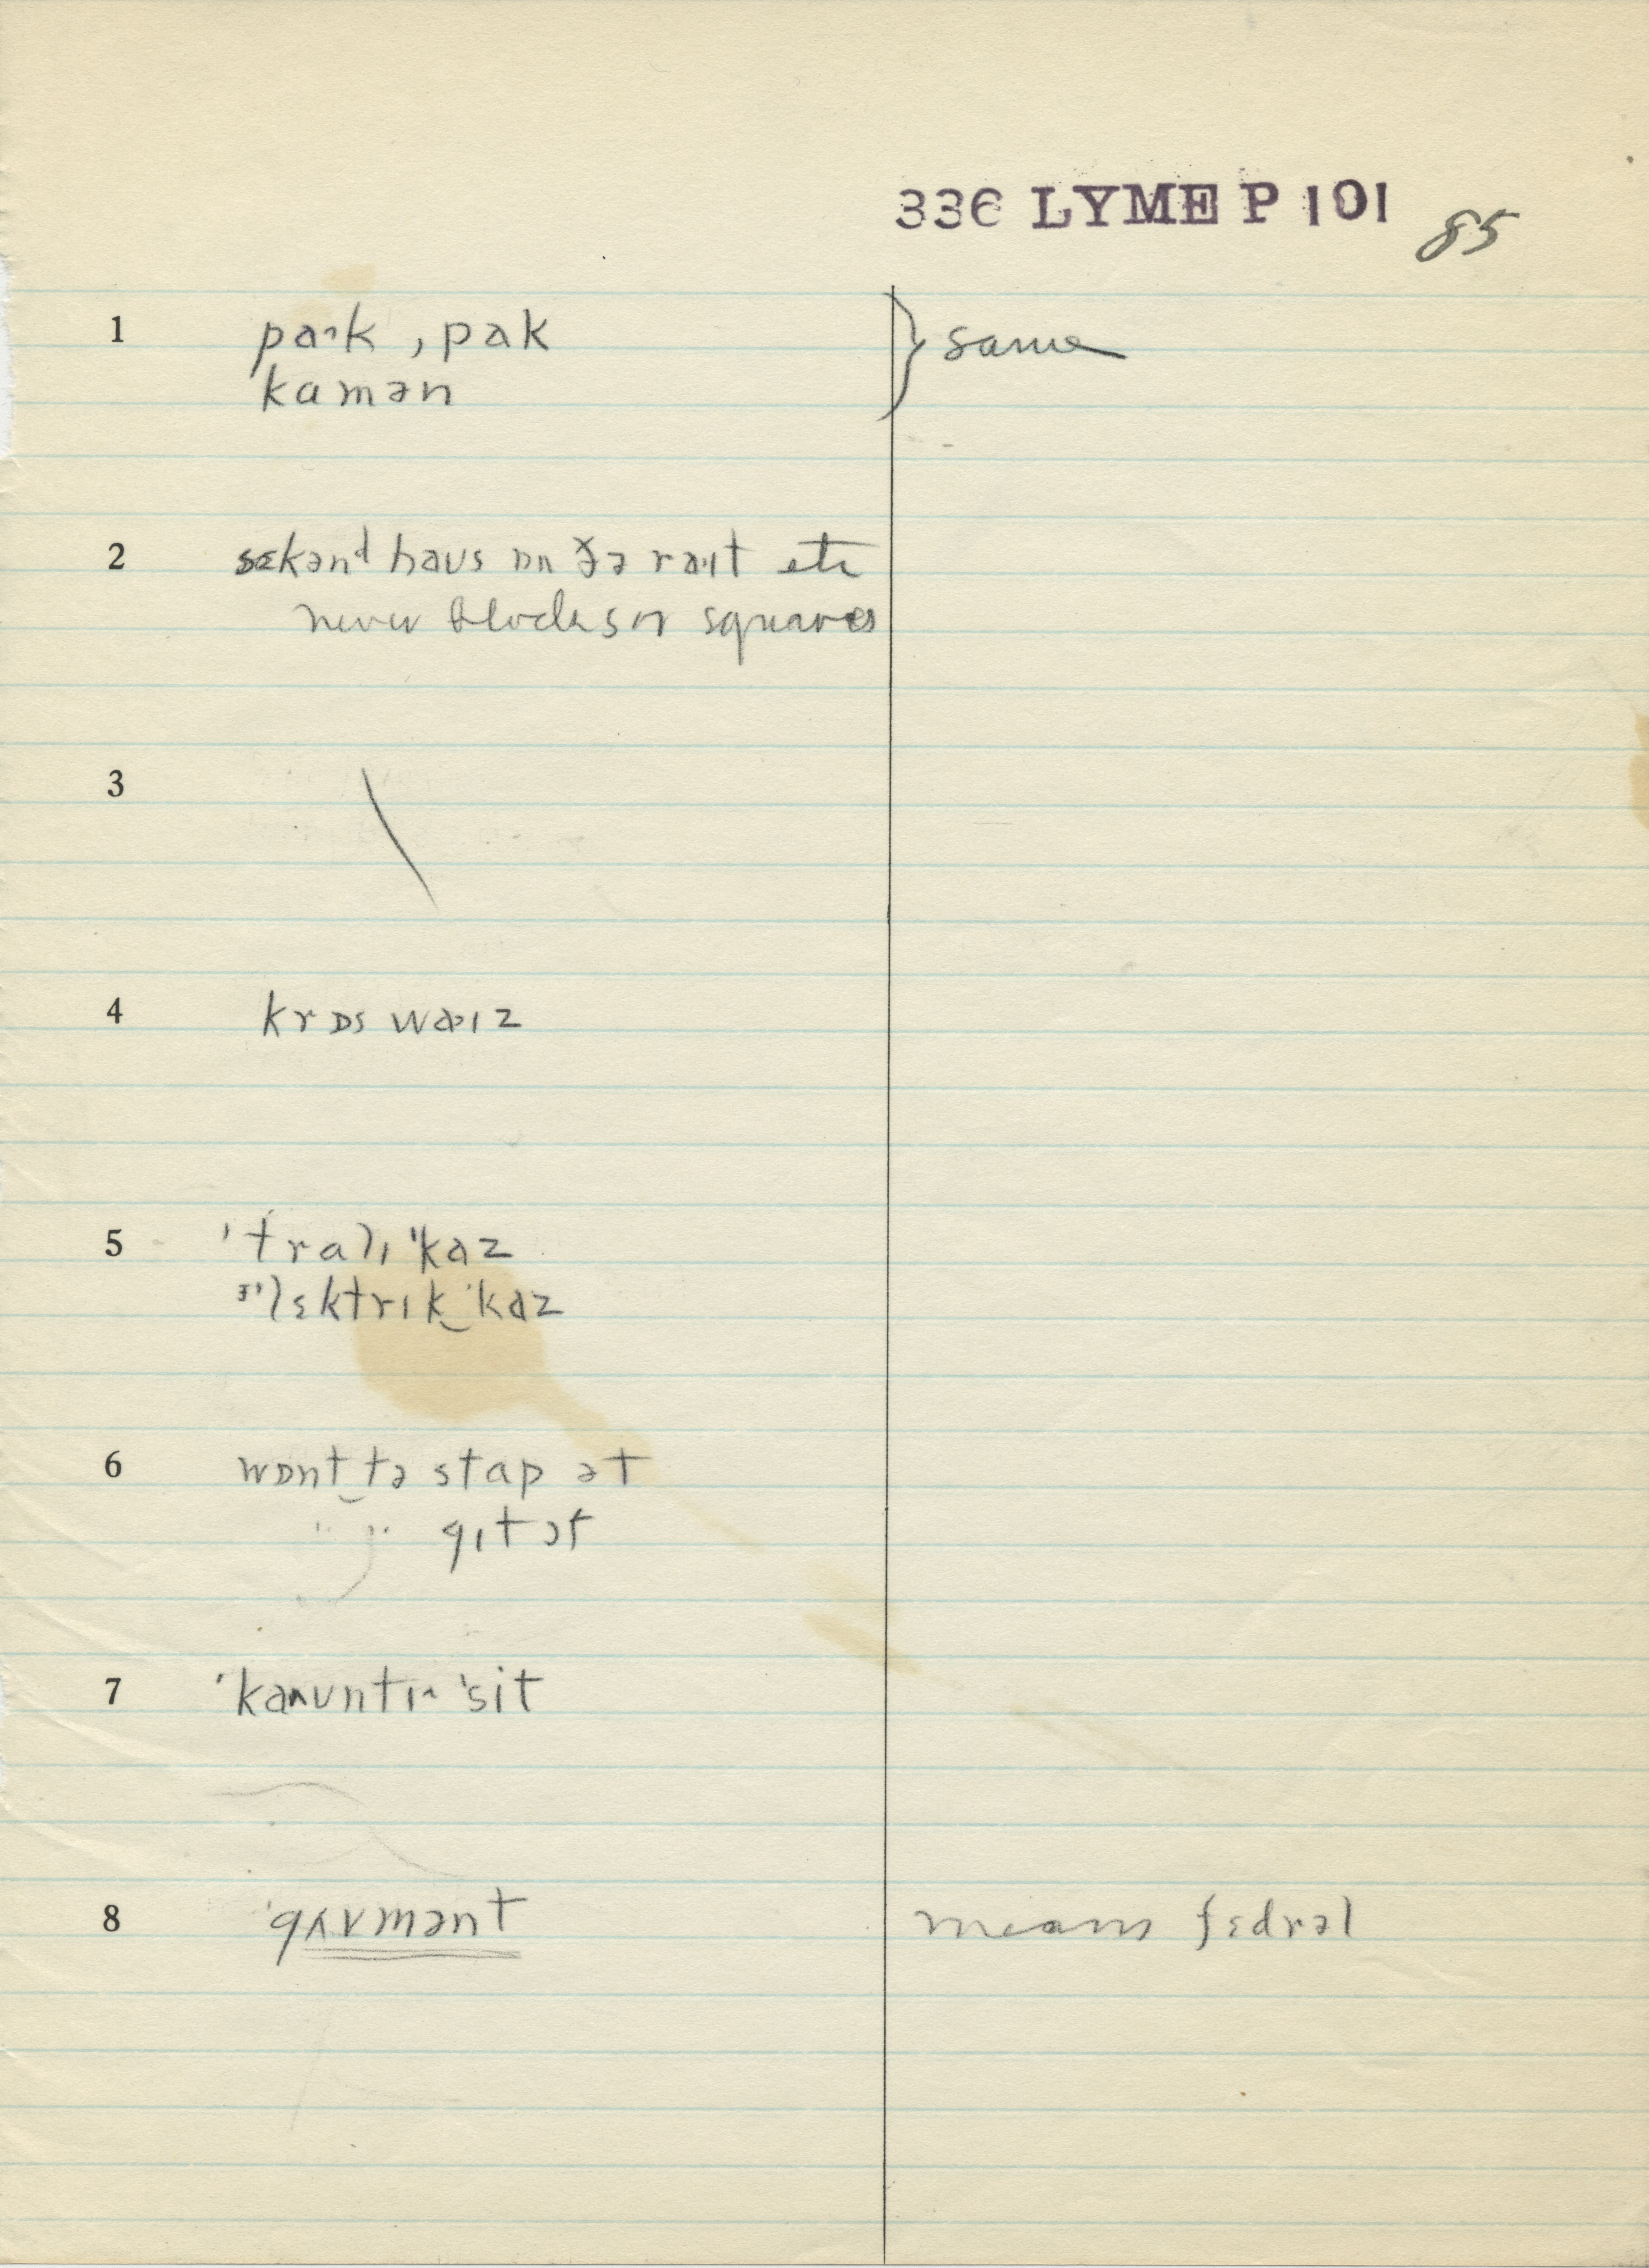 336 LYME P 101 85
1 paˑk , pak } same
kamən
2 sɛkənd haus ɒn ðə raˑɪt etc
never blocks or squares
3
4 krɒs waˑɪz
5 ˈtralɪ ˈkaz
ɪˈlɛktrɪk‿ˈkaz
6 wɒnt‿tə stap ət
" " gɪt ət
7 ˈkaʊntɪ ˈsit
8 ˈgʌvmənt means fɛdrəl